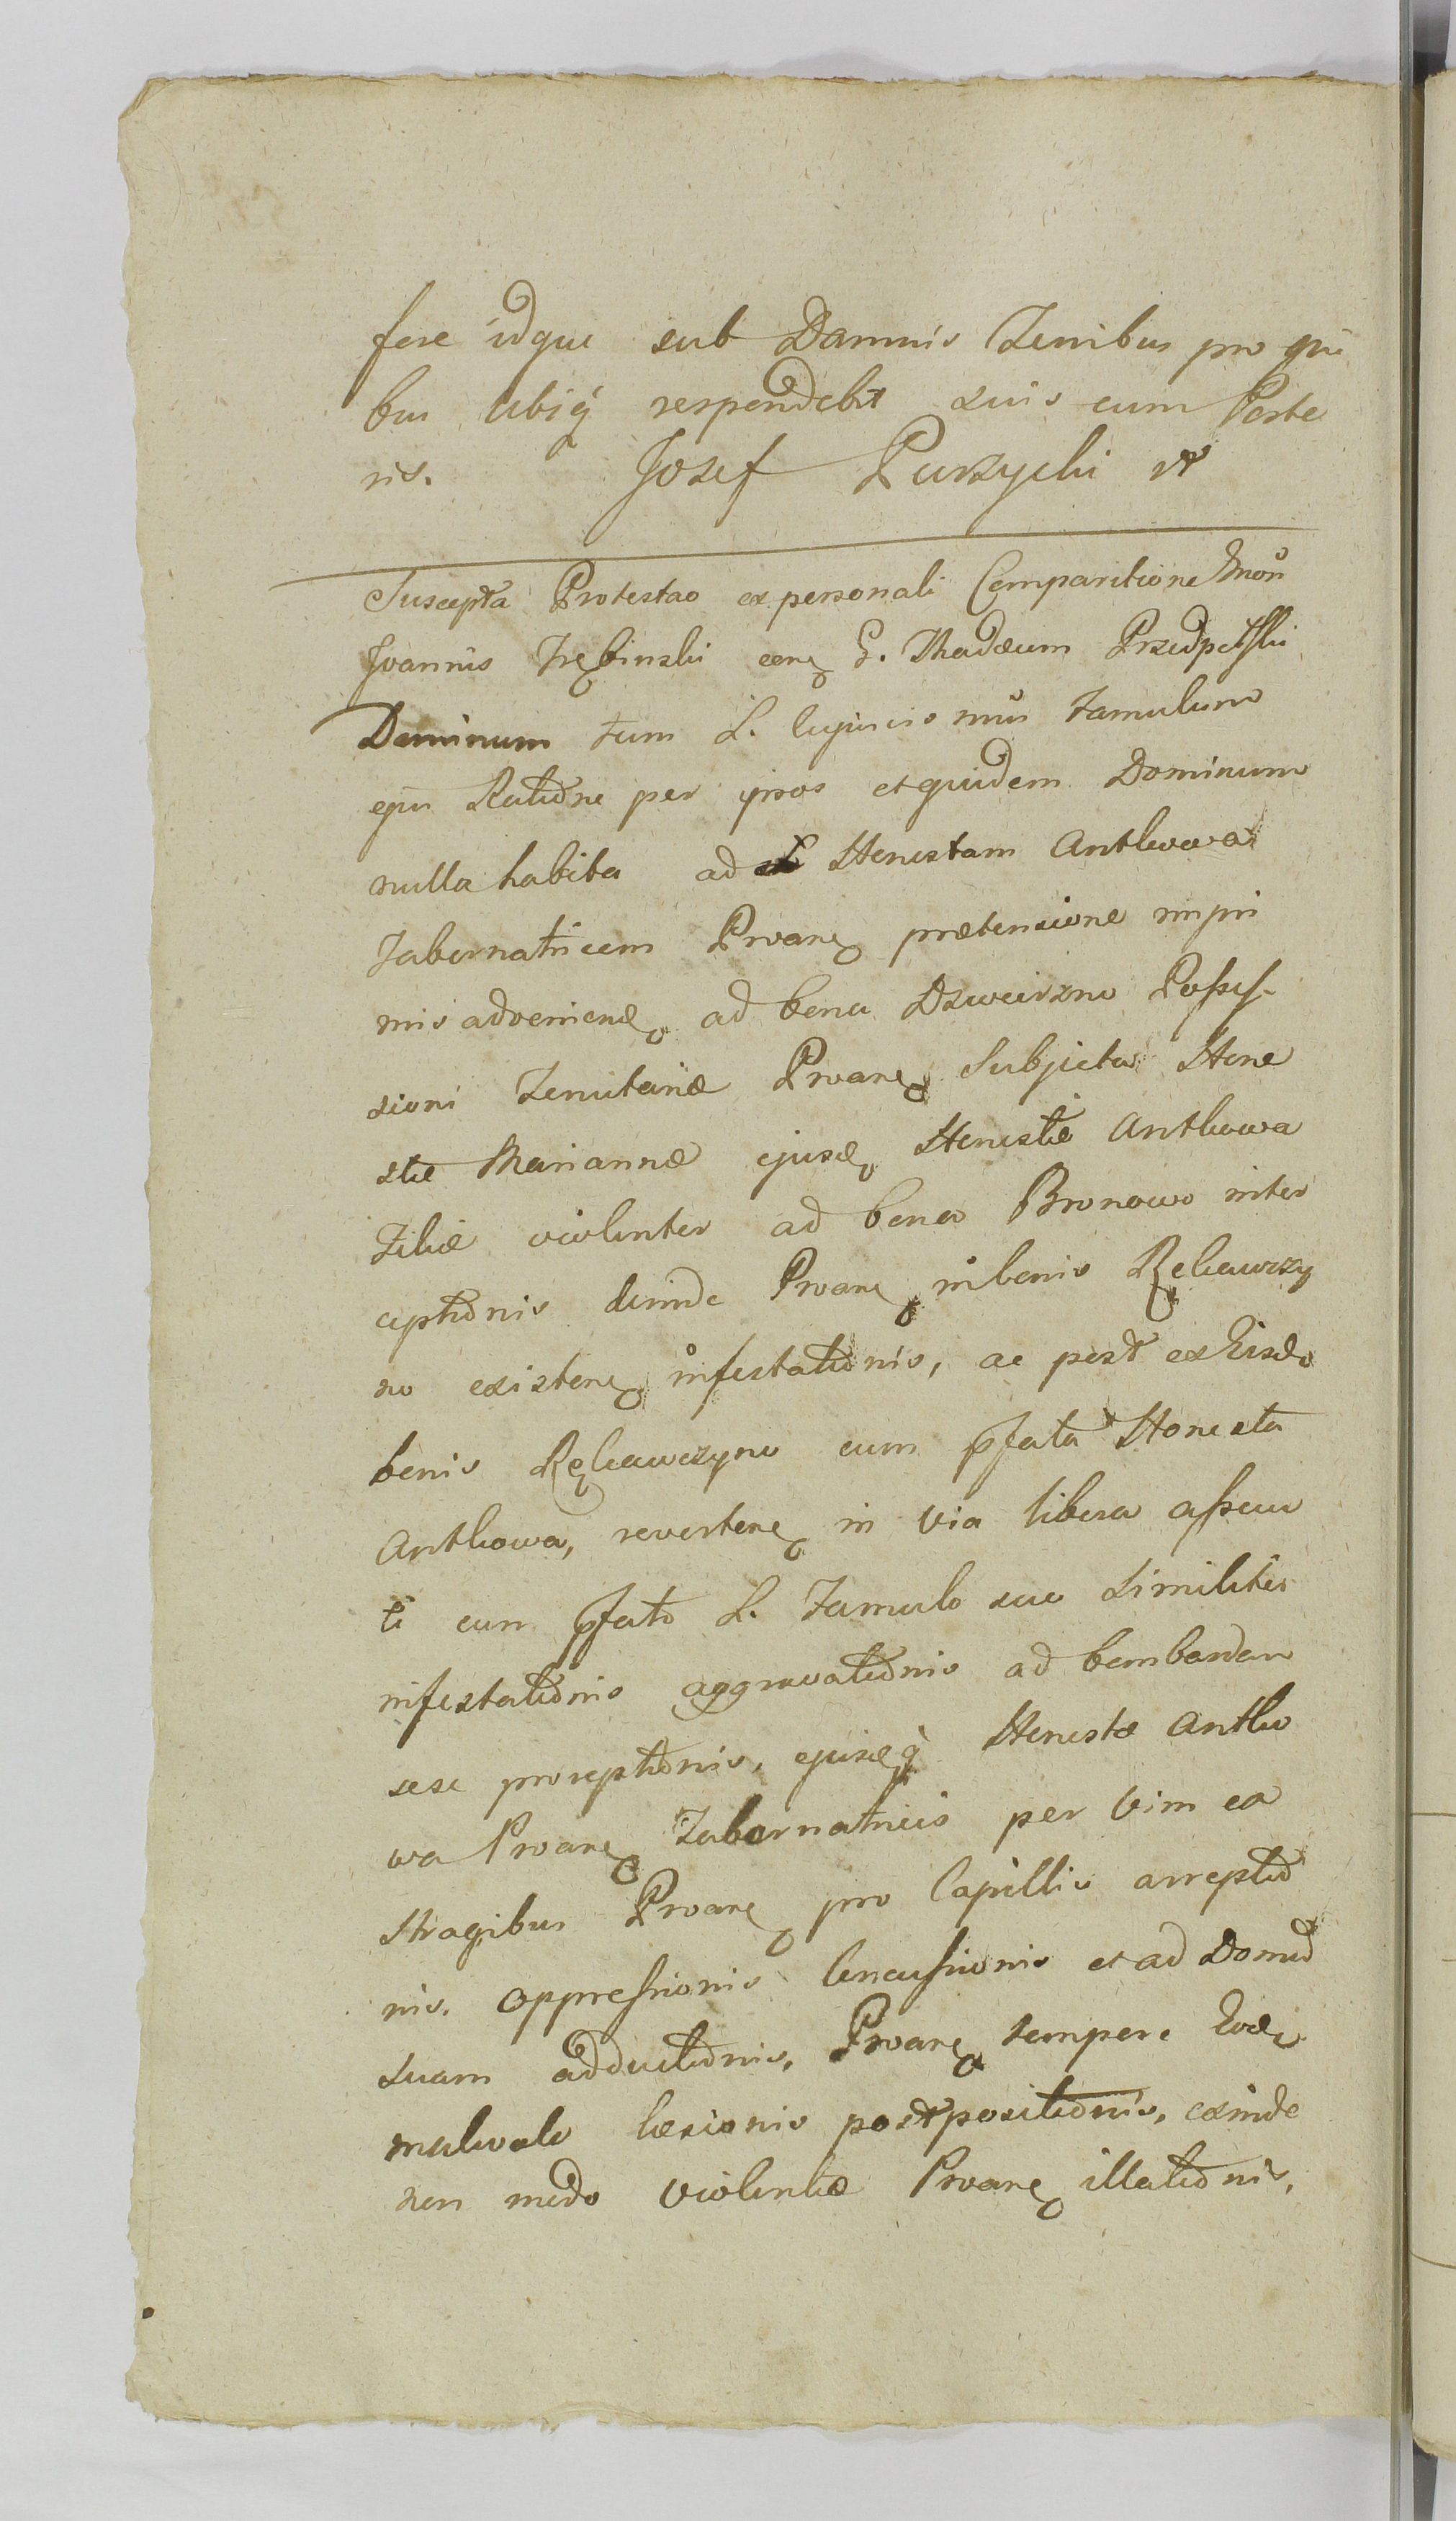 fere idque sub Damnis Zenibus pro qui
bus ubiq respondebit suis cum Poste
ris. Josef Purzycki
Suscepta Protestao ex personali Comparitione
Joannis Trębinski G. Thadæum
Dominum tum L. famulum
ejus per ipsos et quidem Dominum
nulla habita ad Honestam Antkowa
Tabernatricem Proane prætensione inpri
mis adveniene ad bona Dzwierzno Posses
sioni Tenutariæ Proane Subjecta Hone
stæ Mariannæ ejusd Honestæ Antkowa
Filiæ violenter ad bona Bronowo inter
ceptionis deinde Proane in bonis Rękawczy
no existene infestationis, ac post ex Eisdo
bonis Rękawczyno cum pfata Honesta
Antkowa, revertene in via libera assecu
ti cum pfato L. Famulo suo Similiter
infestationis aggravationis ad bombardam
sese proreptionis, ejusdq Honestæ Antko
wa Proane Tabernatricis per vim ea
Stragibus Proane pro Capillis arreptio
nis, oppressionis Concussionis et ad Domum
suam adductionis, Proane tempore
læsionis postpositionis, exinde
non modo violentiæ Proane illationis,